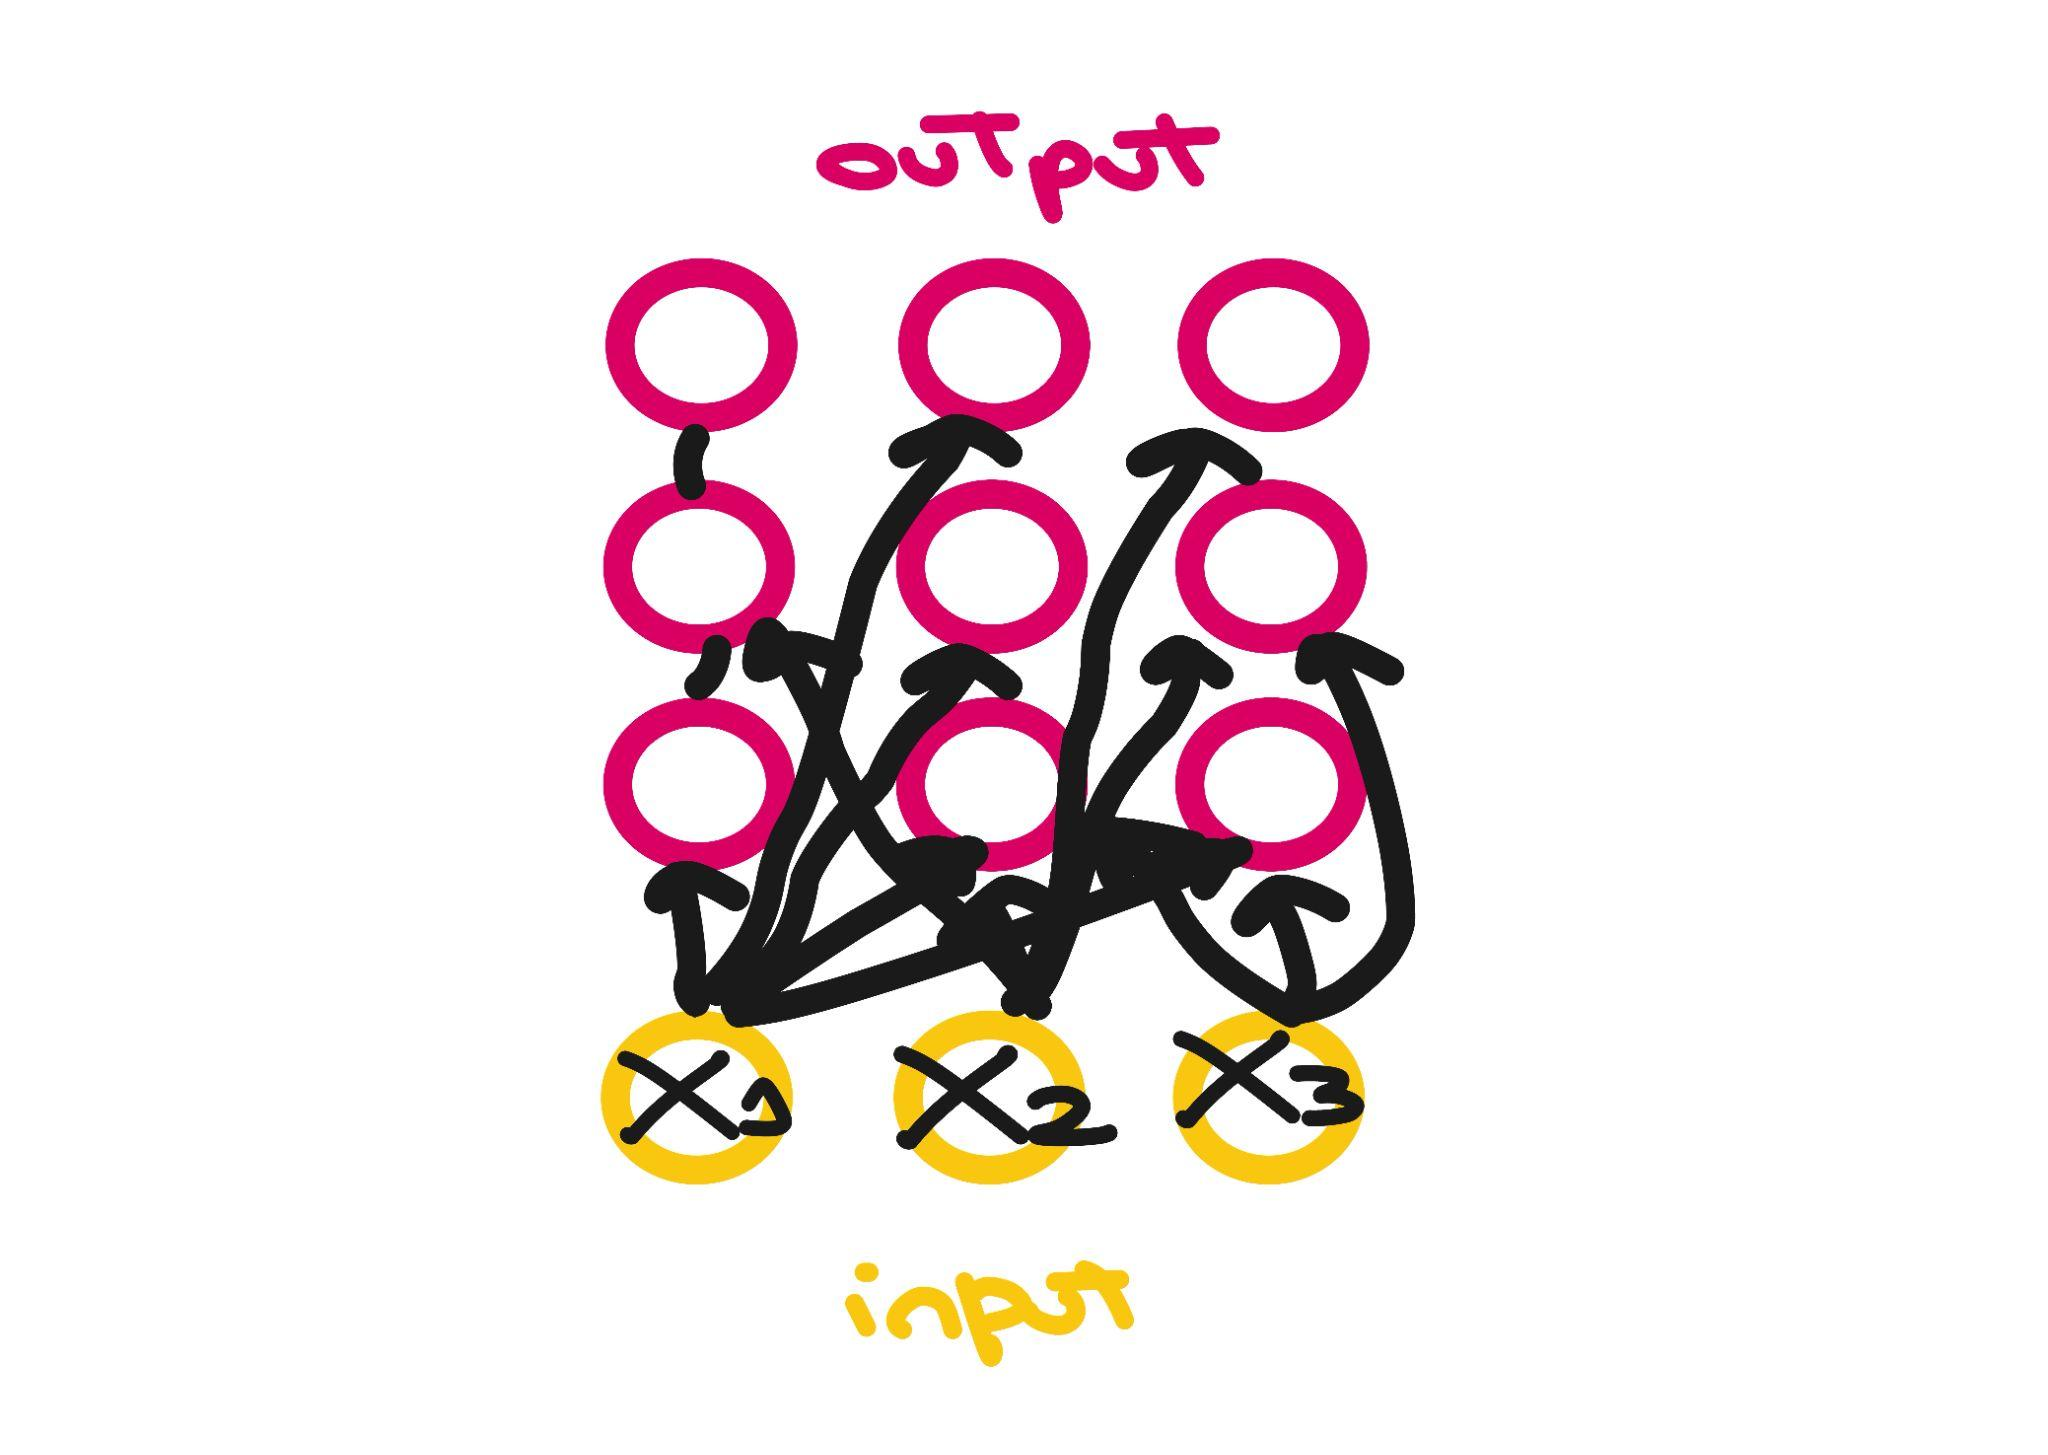 output
X1 X2 X3
input